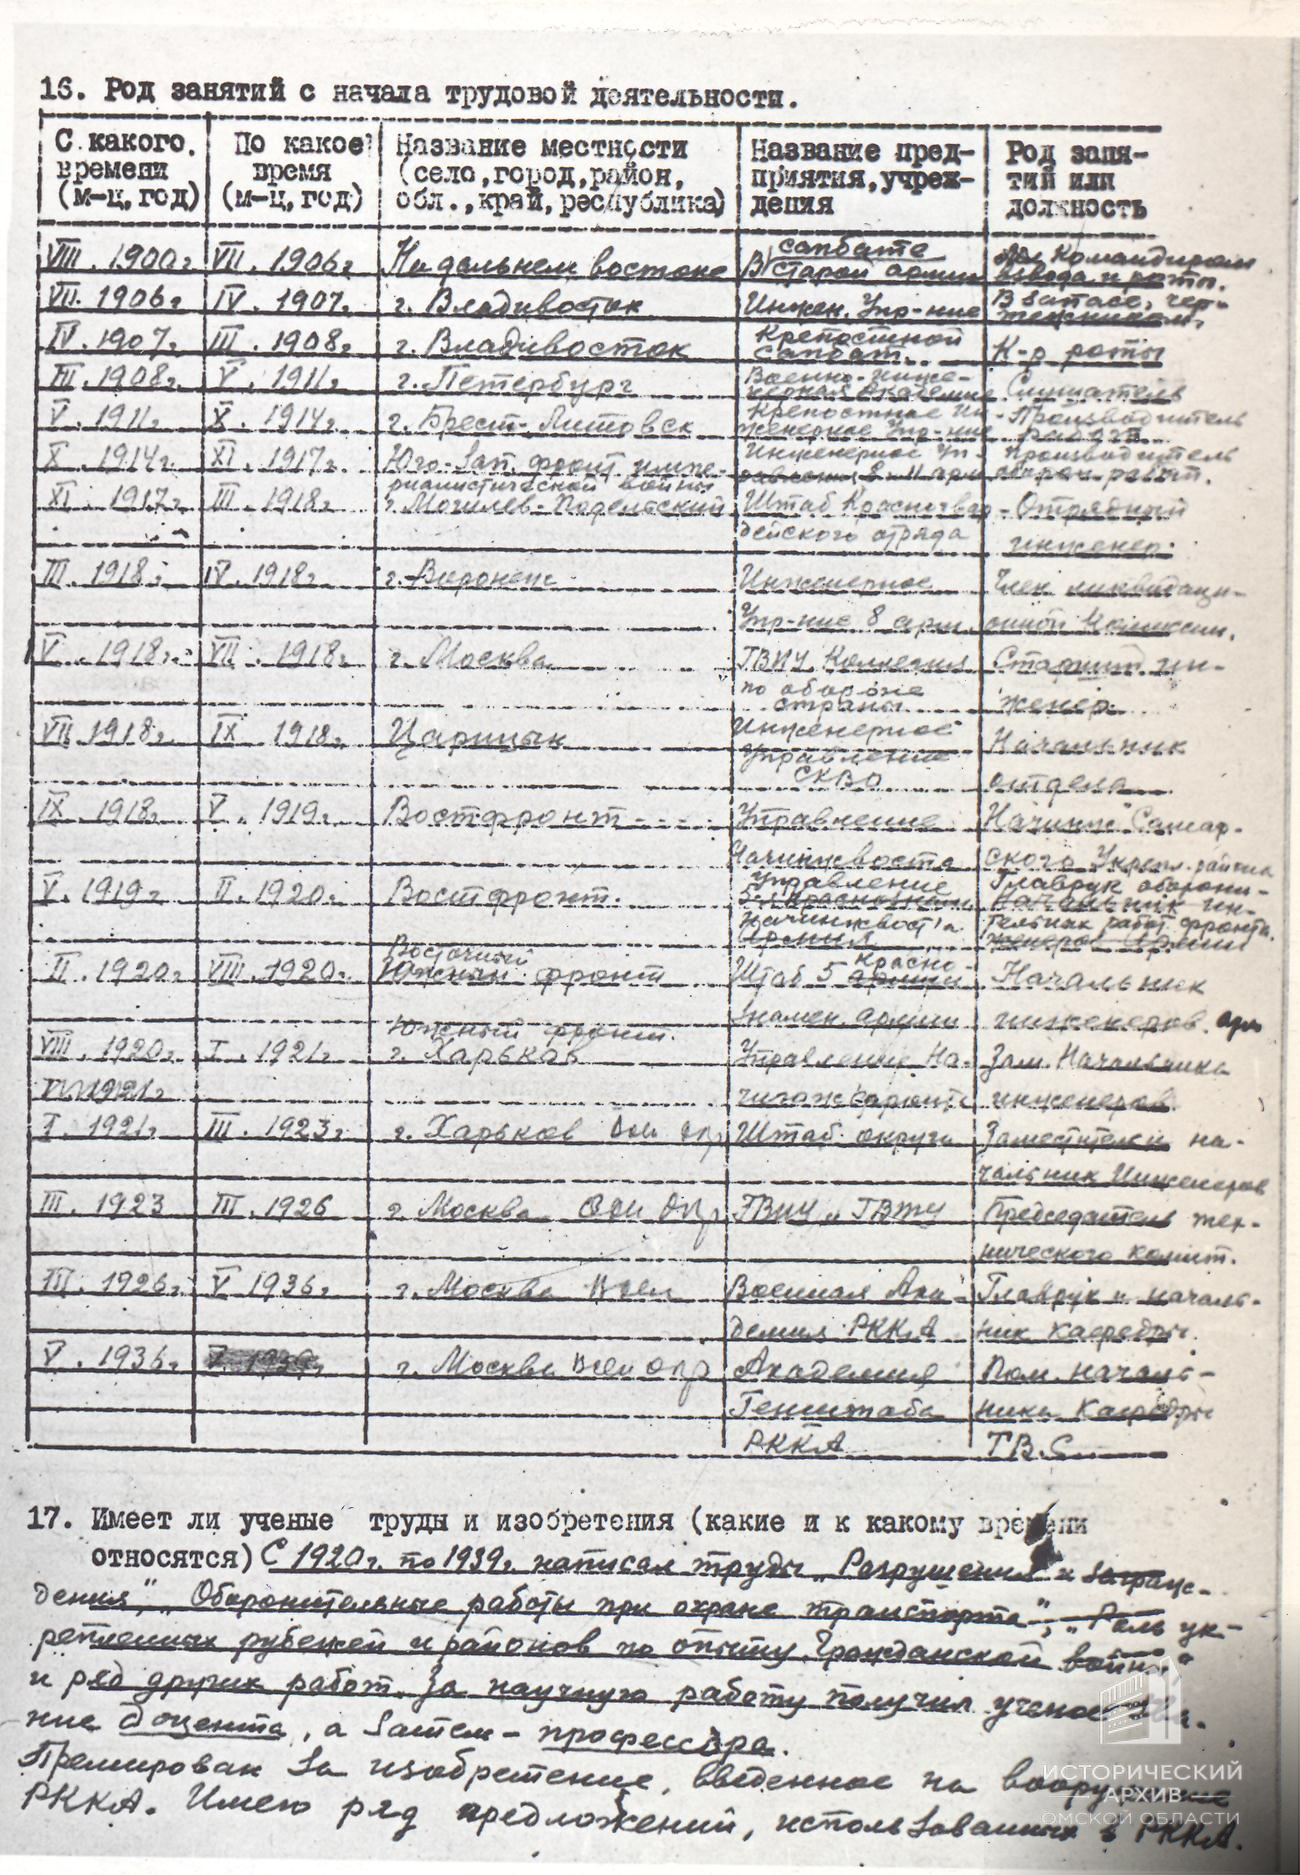 16. Род занятий с начала трудовой деятельности.
С какого времени (м-ц, год) | По какое время (м-ц, год) | Название местности (село, город, район, обл., край, республика) | Название пред-приятия, учреж-дения | Род заня-тий или должность
VIII. 1900г. VII. 1906г. На дальнем востоке В сапбате старой армии Командиром взвода и роты.
VII. 1906г. IV. 1907г. г. Владивосток Инжен. Упр-ние В запасе, чер-тежником.
IV. 1907г. III. 1908г. г. Владивосток Крепостной сапбат. К-р роты
III. 1908г. V. 1911г. г. Петербург Военно-инже-нерная Академия Слушатель
V. 1911г. X. 1914г. г. Брест-Литовск Крепостное Ин-женерное Упр-ние Производитель работ
X. 1914г. XI. 1917г. Юго-Зап. фронт импе-риалистической войны Инженерное Уп-равление 8-й арм Производитель оборон. работ.
XI. 1917г. III. 1918г. г. Могилев-Подольский Штаб Красногвар-дейского отряда Отрядный инженер
III. 1918г. IV. 1918г. г. Воронеж Инженерное Упр-ние 8 арм Член ликвидаци-онной Комиссии.
V. 1918г. VII. 1918г. г. Москва ГВИУ. Коллегия по обороне страны Старший ин-женер
VII. 1918г. IX. 1918г. Царицын Инженерное управление СКВО Начальник отдела
IX. 1918г. V. 1919г. Востфронт Управление Начинжвоста Начинж Самар-ского Укреп. района
V. 1919г. II. 1920г. Востфронт. Управление начинжвоста Главрук оборони-тельных работ фронта.
II. 1920г. VIII. 1920г. Восточный фронт Штаб 5 Красно-знамен. армии Начальник инженеров арм
VIII. 1920г. I. 1921г. Южный фронт. г. Харьков Управление На-чинжфронта Зам. Начальника инженеров
VI. 1921г.
I. 1921г. III. 1923г. г. Харьков Штаб округа Заместитель на-чальник Инженеров
III. 1923 III. 1926 г. Москва ГВИУ и ГВТУ Председатель тех-нического комит.
III. 1926г. V. 1936г. г. Москва Военная Ака-демия РККА Главрук и началь-ник Кафедры
V. 1936г. г. Москва Академия Генштаба РККА Пом. началь-ника Кафедры ТВ.С.
17. Имеет ли ученые труды и изобретения (какие и к какому времени
относятся) С 1920г. по 1939г. написал труды „Разрушения и загражд-
дения", „Оборонительные работы при охране транспорта", „Роль ук-
репленных рубежей и районов по опыту Гражданской войны"
и ряд других работ. За научную работу получил ученое зва-
ние доцента, а затем - профессора.
Премирован за изобретение, введенное на вооружение
РККА. Имею ряд предложений, использованных в РККА.
ИСТОРИЧЕСКИЙ
АРХИВ
ОМСКОЙ ОБЛАСТИ